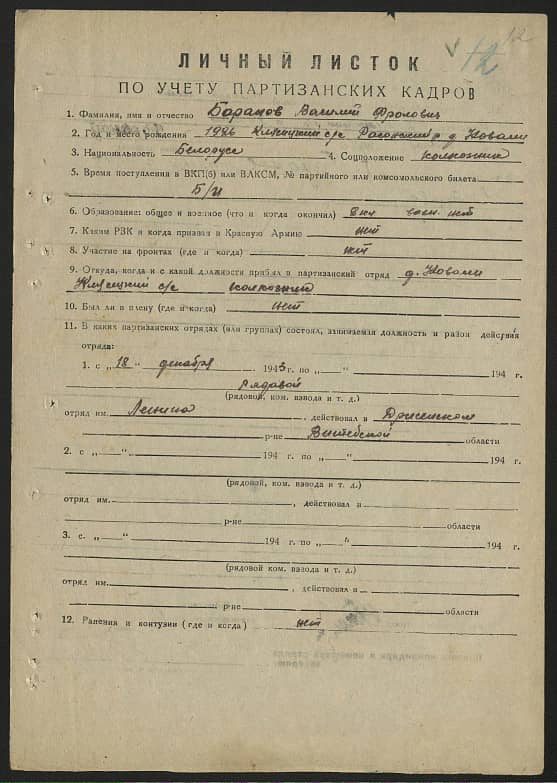 12
12
ЛИЧНЫЙ ЛИСТОК
ПО УЧЕТУ ПАРТИЗАНСКИХ КАДРОВ
1. Фамилия, имя и отчество Баранов Василий Фролович
2. Год и место рождения 1926 с/с д. Ковали
3. Национальность Белорусс 4. Соцположение колхозник
5. Время поступления в ВКП(б) или ВЛКСМ, № партийного или комсомольского билета
Б/п
6. Образование: общее и военное (что и когда окончил) воен. нет
7. Каким РВК и когда призван в Красную Армию нет
8. Участие на фронтах (где и когда) нет
9. Откуда, когда и с какой должности прибыл в партизанский отряд д. Ковали
с/с колхозник
10. Был ли в плену (где и когда) нет
11. В каких партизанских отрядах (или группах) состоял, занимаемая должность и район действия
отряда:
1. с „18“ декабря 1943 г. по „ “ 194 г.
Рядовой
(рядовой, ком. взвода и т. д.)
отряд им. Ленина, действовал в
р-не Витебской области
2. с „ “ 194 г. по „ “ 194 г.
(рядовой, ком. взвода и т. д.)
отряд им. , действовал в
р-не области
3. с. „ “ 194 г. по „ “ 194 г.
(рядовой ком. взвода и т. д.)
отряд им. , действовал в
р-не области
12. Ранения и контузии (где и когда) нет